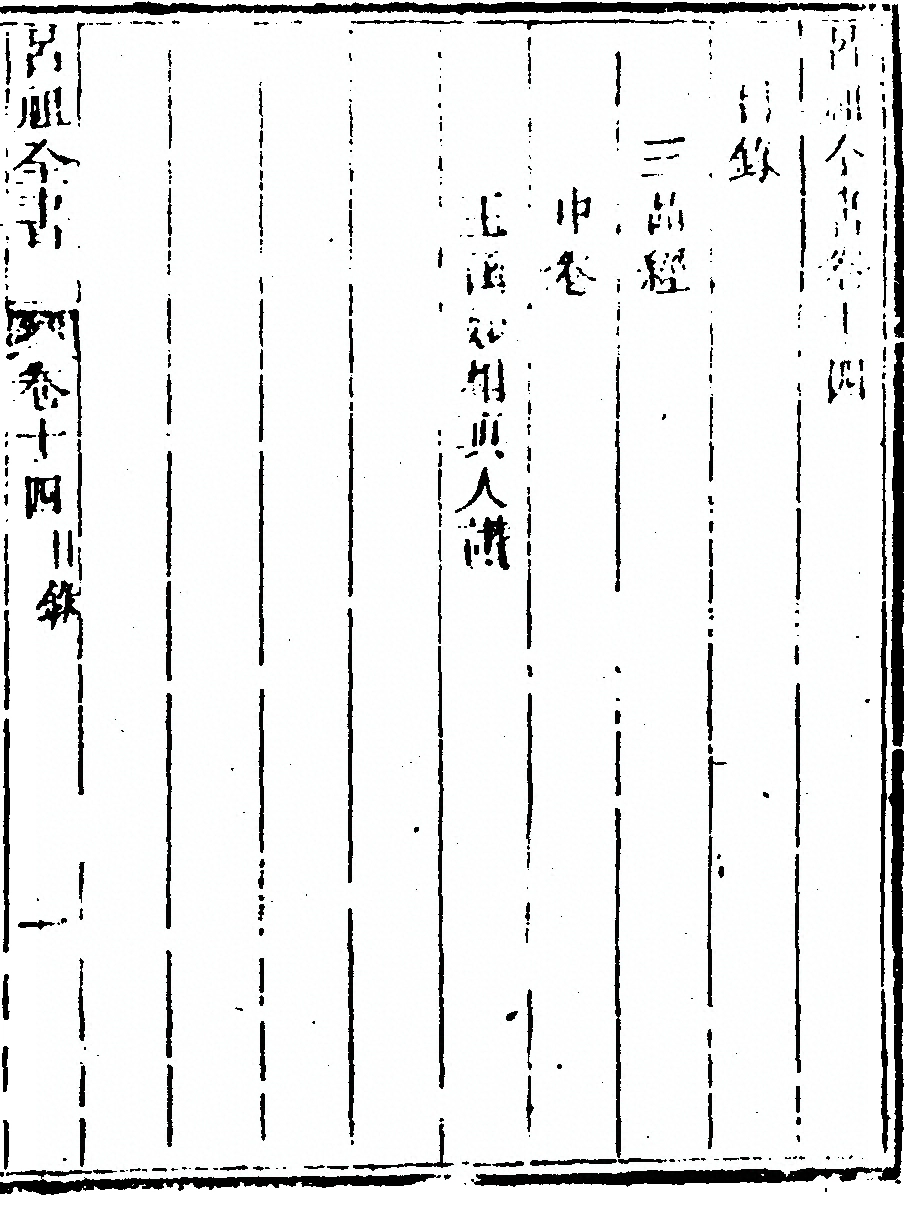 呂祖全書卷十四
目錄
三品經
中卷
玉函相真人講
呂祖全書 卷十四 目錄 一